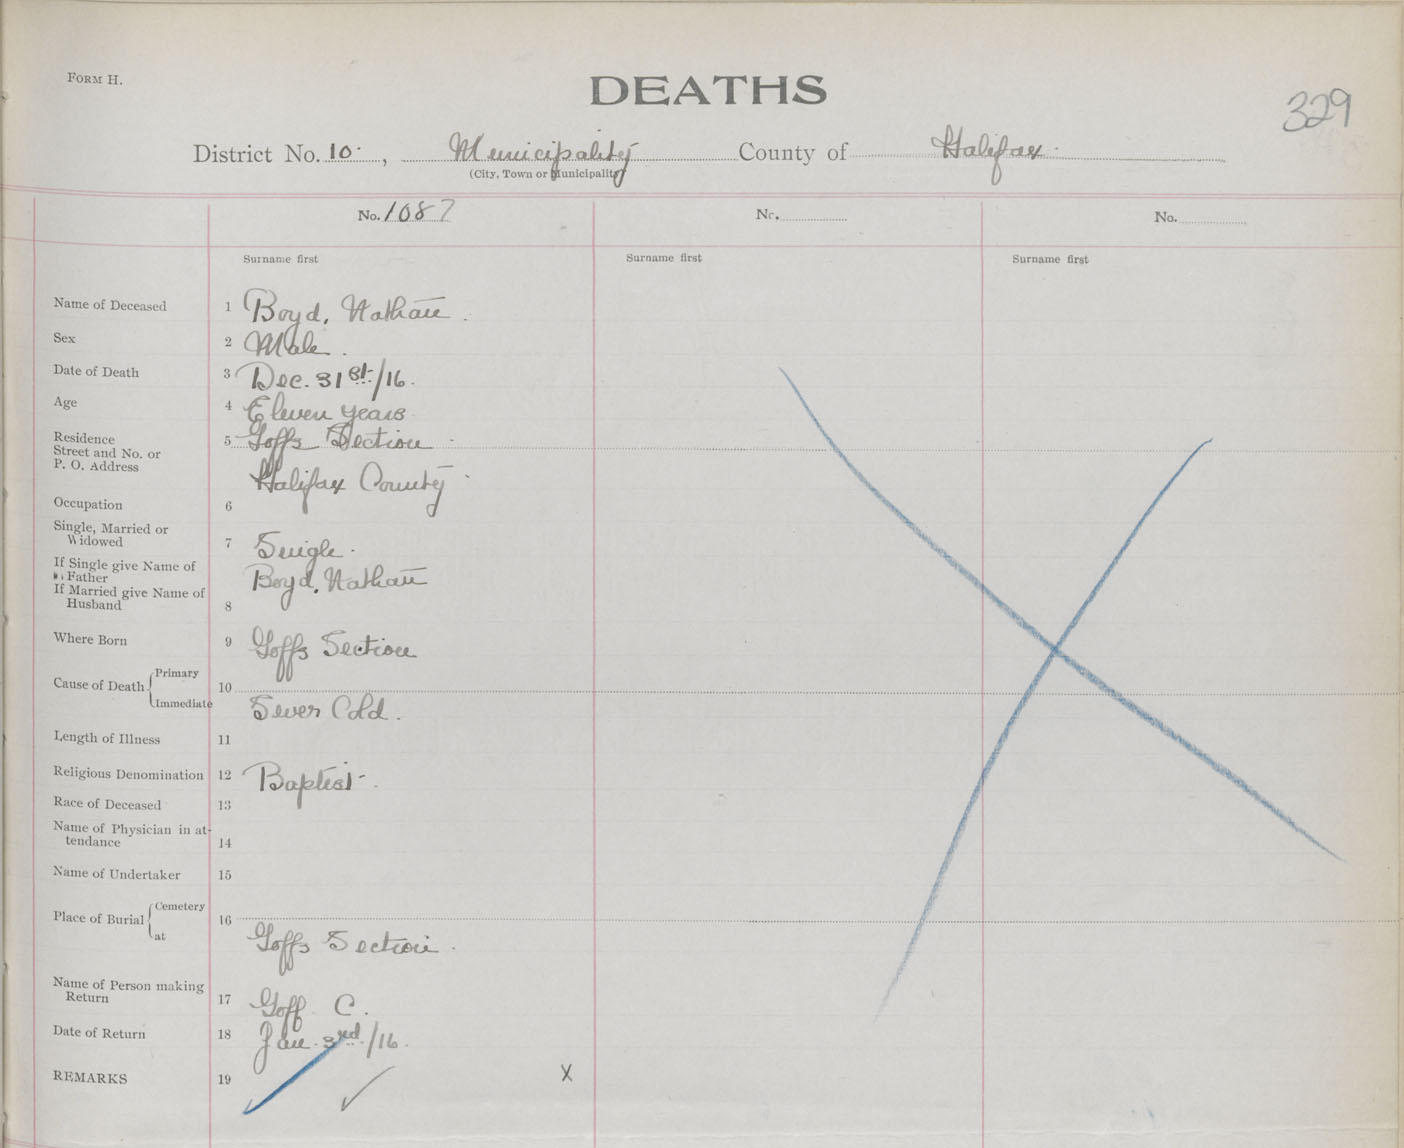 FORM H.
DEATHS
329
District No. 10. , Municipality County of Halifax.
(City, Town or Municipality)
No. 1087 No. No.
Surname first Surname first Surname first
Name of Deceased 1 Boyd, Nathan.
Sex 2 Male.
Date of Death 3 Dec. 31st/16.
Age 4 Eleven years
Residence 5 Goffs Section.
Street and No. or
P. O. Address Halifax County.
Occupation 6
Single, Married or
Widowed 7 Single.
If Single give Name of
Father Boyd, Nathan
If Married give Name of
Husband 8
Where Born 9 Goffs Section
Primary
Cause of Death 10
Immediate Sever Cold.
Length of Illness 11
Religious Denomination 12 Baptist.
Race of Deceased 13
Name of Physician in at-
tendance 14
Name of Undertaker 15
Cemetery
Place of Burial 16
at Goffs Section.
Name of Person making
Return 17 Goff C.
Date of Return 18 Jan. 3rd/16.
REMARKS 19 X